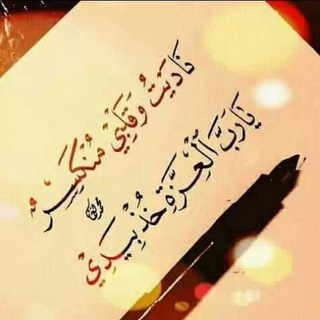 نَادَيْتُ وَقَلْبِيْ مُنْكَسِرٌ
يَارَبَّ ٱلْعِزَّةِ خُذْ بِيَدِيْ